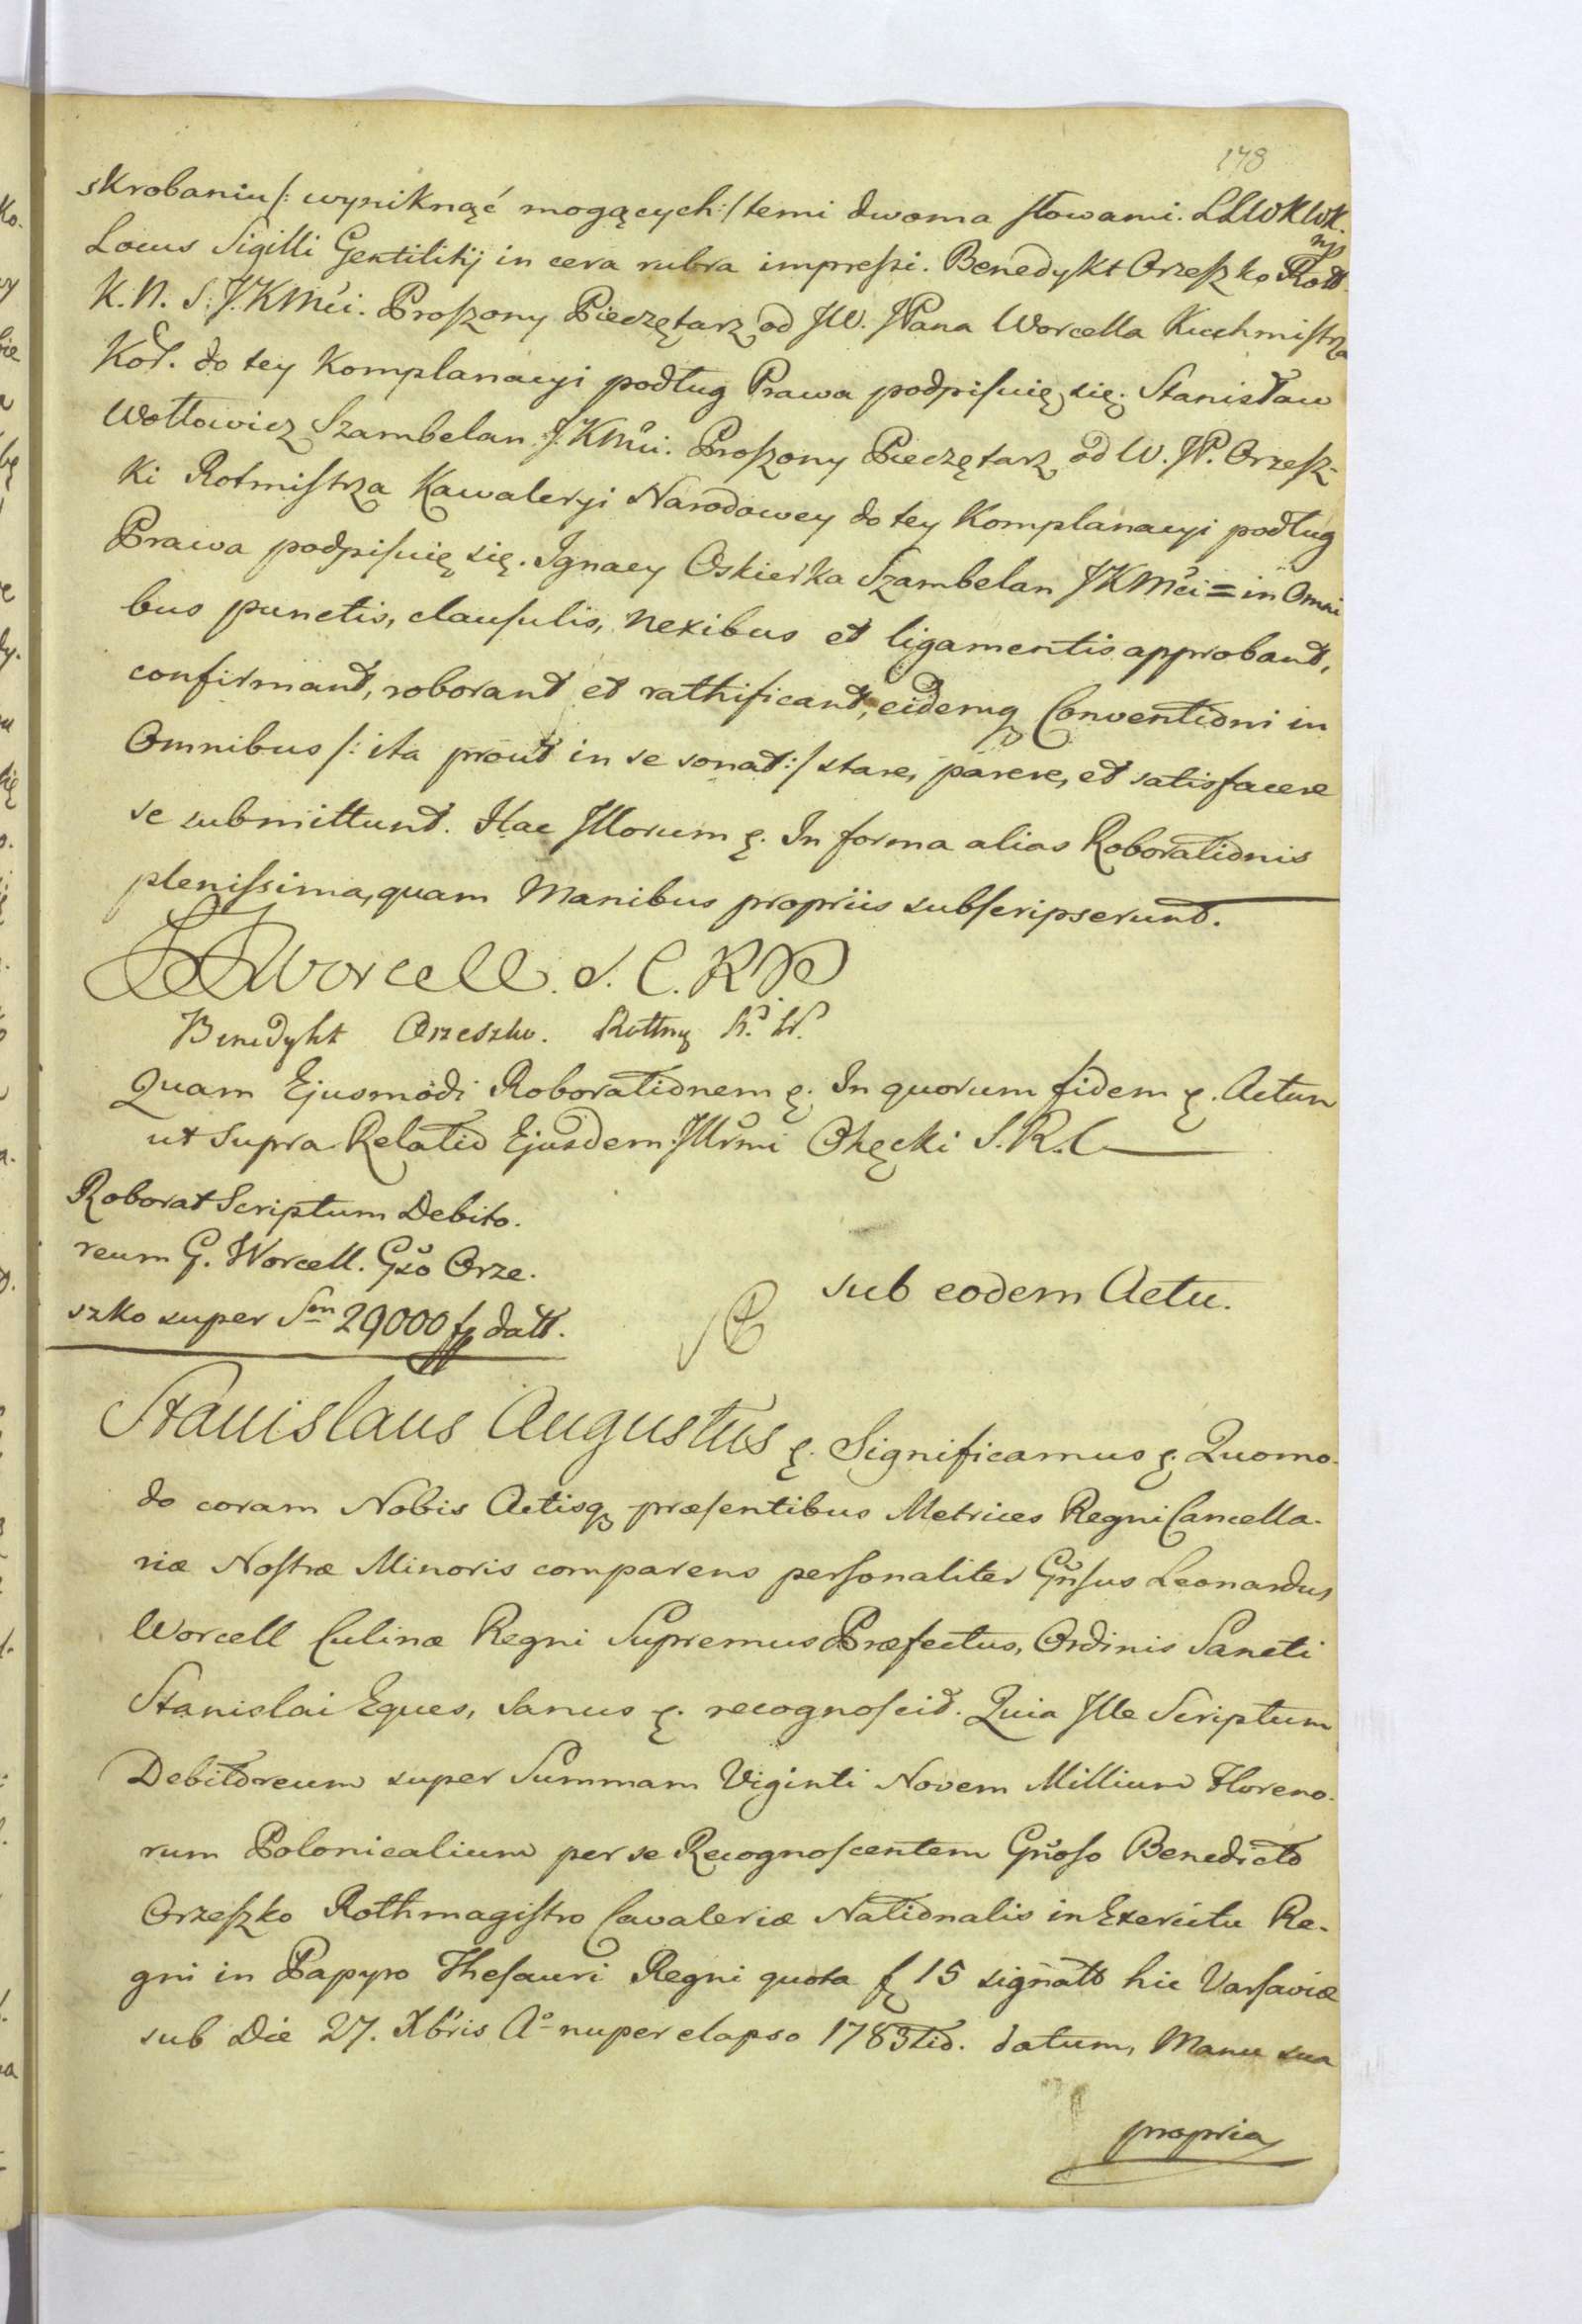 178
skrobaniu /: wyniknąć mogących :/ temi dwoma słowami. LLWKWK.
Locus Sigilli Gentilitij in cera rubra impreſsi. Benedykt Orzeſzko Rott
K. N. S. J. K Mći. Proſzony Pieczętarz od JW. JPana Worcella Kuchmiſtrza
Kor. do tey Komplanacyi podług Prawa podpiſuię się. Stanisław
Wołłowicz Szambelan J. K Mći. Proſzony Pieczętarz od W. JP. Orzeſz-
ki Rotmiſtrza Kawaleryi Narodowey do tey Komplanacyi podług
Prawa podpiſuię się. Ignacy Oskierka Szambelan J K Mći = in Omni
bus punctis, clauſulis, nexibus et ligamentis approbant,
confirmant, roborant et rathificant, eidemq Conventioni in
Omnibus /: ita prout in se sonat :/ stare, parere, et satisfacere
se submittunt. Hac Illorum ę. In forma alias Roborationis
pleniſsima, quam Manibus propriis subſcripserunt.
Worcell. S. C. R
Benedykt Orzeszko. Rottmz K. N.
Quam Ejusmodi Roborationem ę. In quorum fidem ę. Actum
ut Supra Relatio Ejusdem Illrmi Okęcki S. R. C
Roborat Scriptum Debito.
reum G. Worcell. Gso Orze.
szko super Sm 29000 f datt.
sub eodem Actu.
Stanislaus Augustus ę. Significamus ę. Quomo-
do coram Nobis Actisq præſentibus Metrices Regni Cancella-
riæ Noſtræ Minoris comparens perſonaliter Gnſus Leonardus
Worcell Culinæ Regni Supremus Præfectus, Ordinis Sancti
Stanislai Eques, Sanus ę. recognoſcit. Quia Ille Scriptum
Debitoreum super Summam Viginti Novem Millium Floreno-
rum Polonicalium per se Recognoſcentem Gnoſo Benedicto
Orzeſzko Rothmagiſtro Cavaleriæ Nationalis in Exercitu Re-
gni in Papyro Theſauri Regni quota f 15 signatt hic Varſaviæ
sub Die 27. Xbris Ao nuper elapso 1783tio. datum, Manu sua
propria